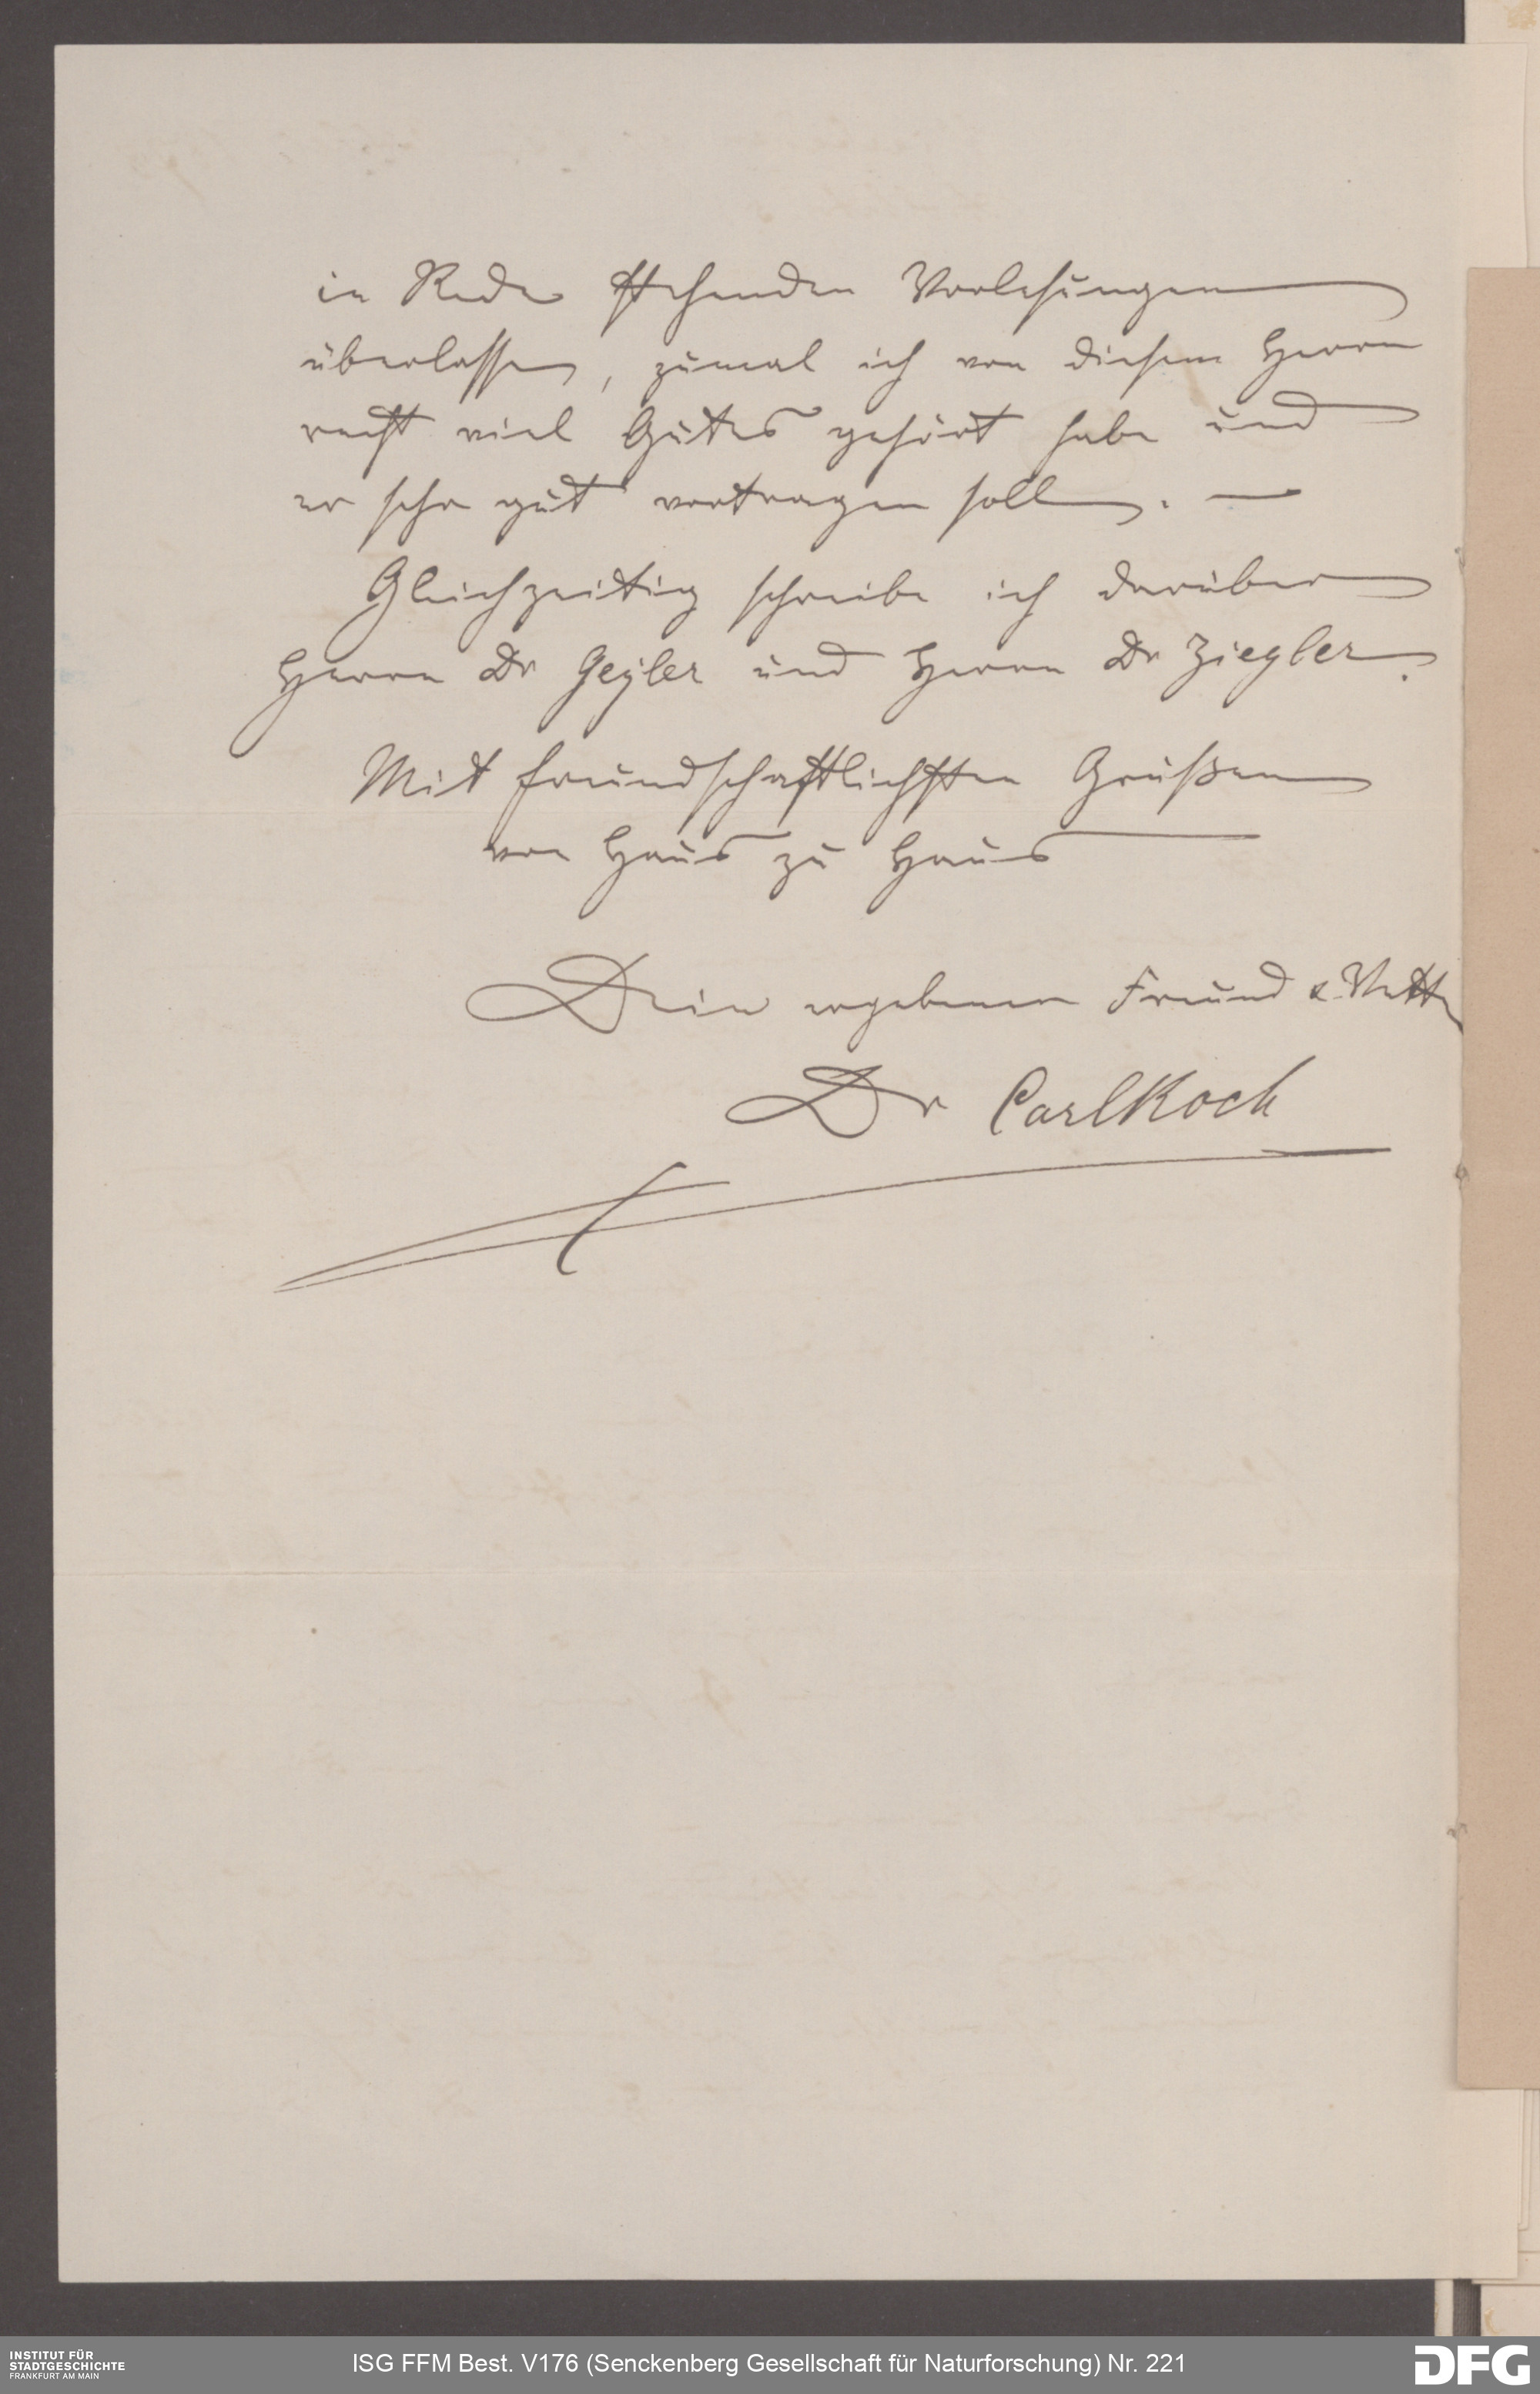 in Rede stehenden Vorlesungen
überlassen, zumal ich von diesem Herrn
recht viel Gutes gehört habe und
er sehr gut vortragen soll. —
Gleichzeitig schreibe ich darüber
Herrn Dr Geyler und Herrn Dr Ziegler.
Mit freundschaftlichsten Grüßen
von Haus zu Haus
Dein ergebener Freund & Vetter
Dr Carl Koch
INSTITUT FÜR
STADTGESCHICHTE
FRANKFURT AM MAIN
ISG FFM Best. V176 (Senckenberg Gesellschaft für Naturforschung) Nr. 221
DFG